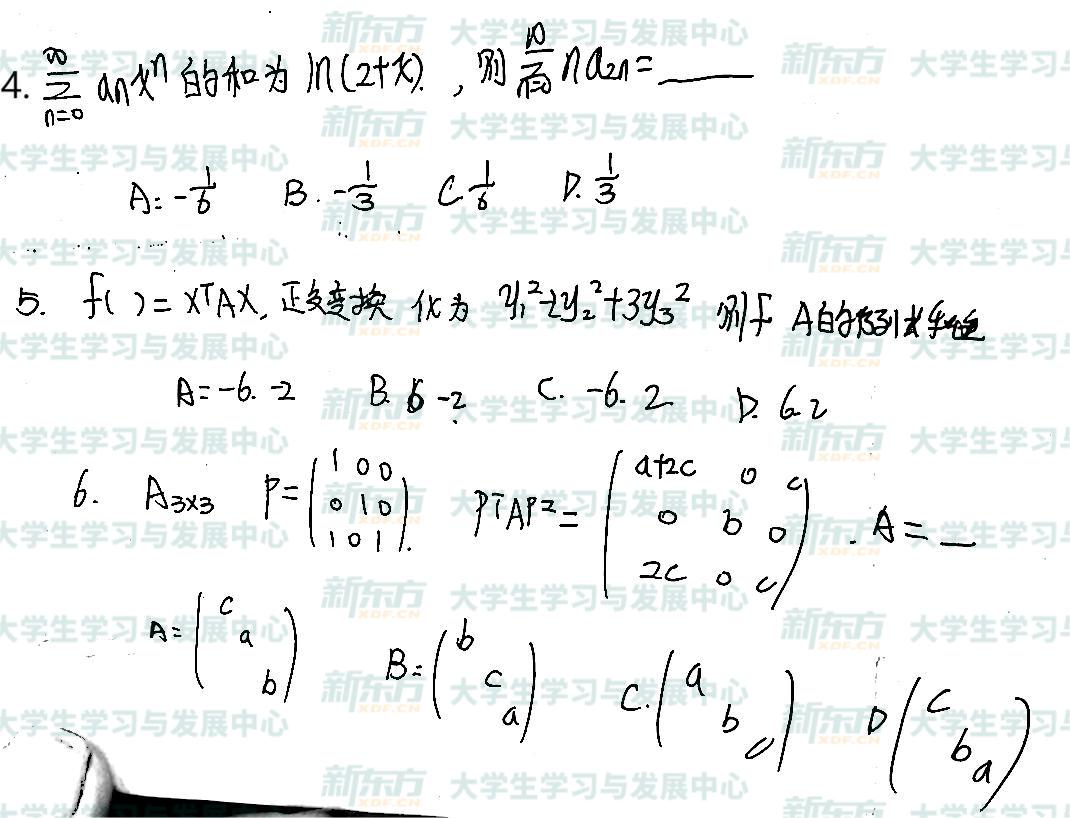 4. $\sum_{n=0}^{\infty} a_n x^n$ 的和为 ln(2+x). , 则 $\sum_{n=0}^{\infty} n a_{2n}$ = ____
A: $-\frac{1}{6}$ B. $-\frac{1}{3}$ C. $\frac{1}{6}$ D. $\frac{1}{3}$
5. f( ) = XᵀAX, 正交变换 化为 $y_1^2-2y_2^2+3y_3^2$ 则f A的行列式 与迹
A: -6. -2 B. 6 -2 C. -6. 2 D. 6 2
6. $A_{3\times3}$ $P=\begin{pmatrix}1&0&0\\0&1&0\\1&0&1\end{pmatrix}$. $P^TAP^2=\begin{pmatrix}a+2c&0&c\\0&b&0\\2c&0&c\end{pmatrix}$. A = _
A: $\begin{pmatrix}c&&\\&a&\\&&b\end{pmatrix}$ B: $\begin{pmatrix}b&&\\&c&\\&&a\end{pmatrix}$ C. $\begin{pmatrix}a&&\\&b&\\&&c\end{pmatrix}$ D $\begin{pmatrix}c&&\\&b&\\&&a\end{pmatrix}$
新东方 XDF.CN 大学生学习与发展中心